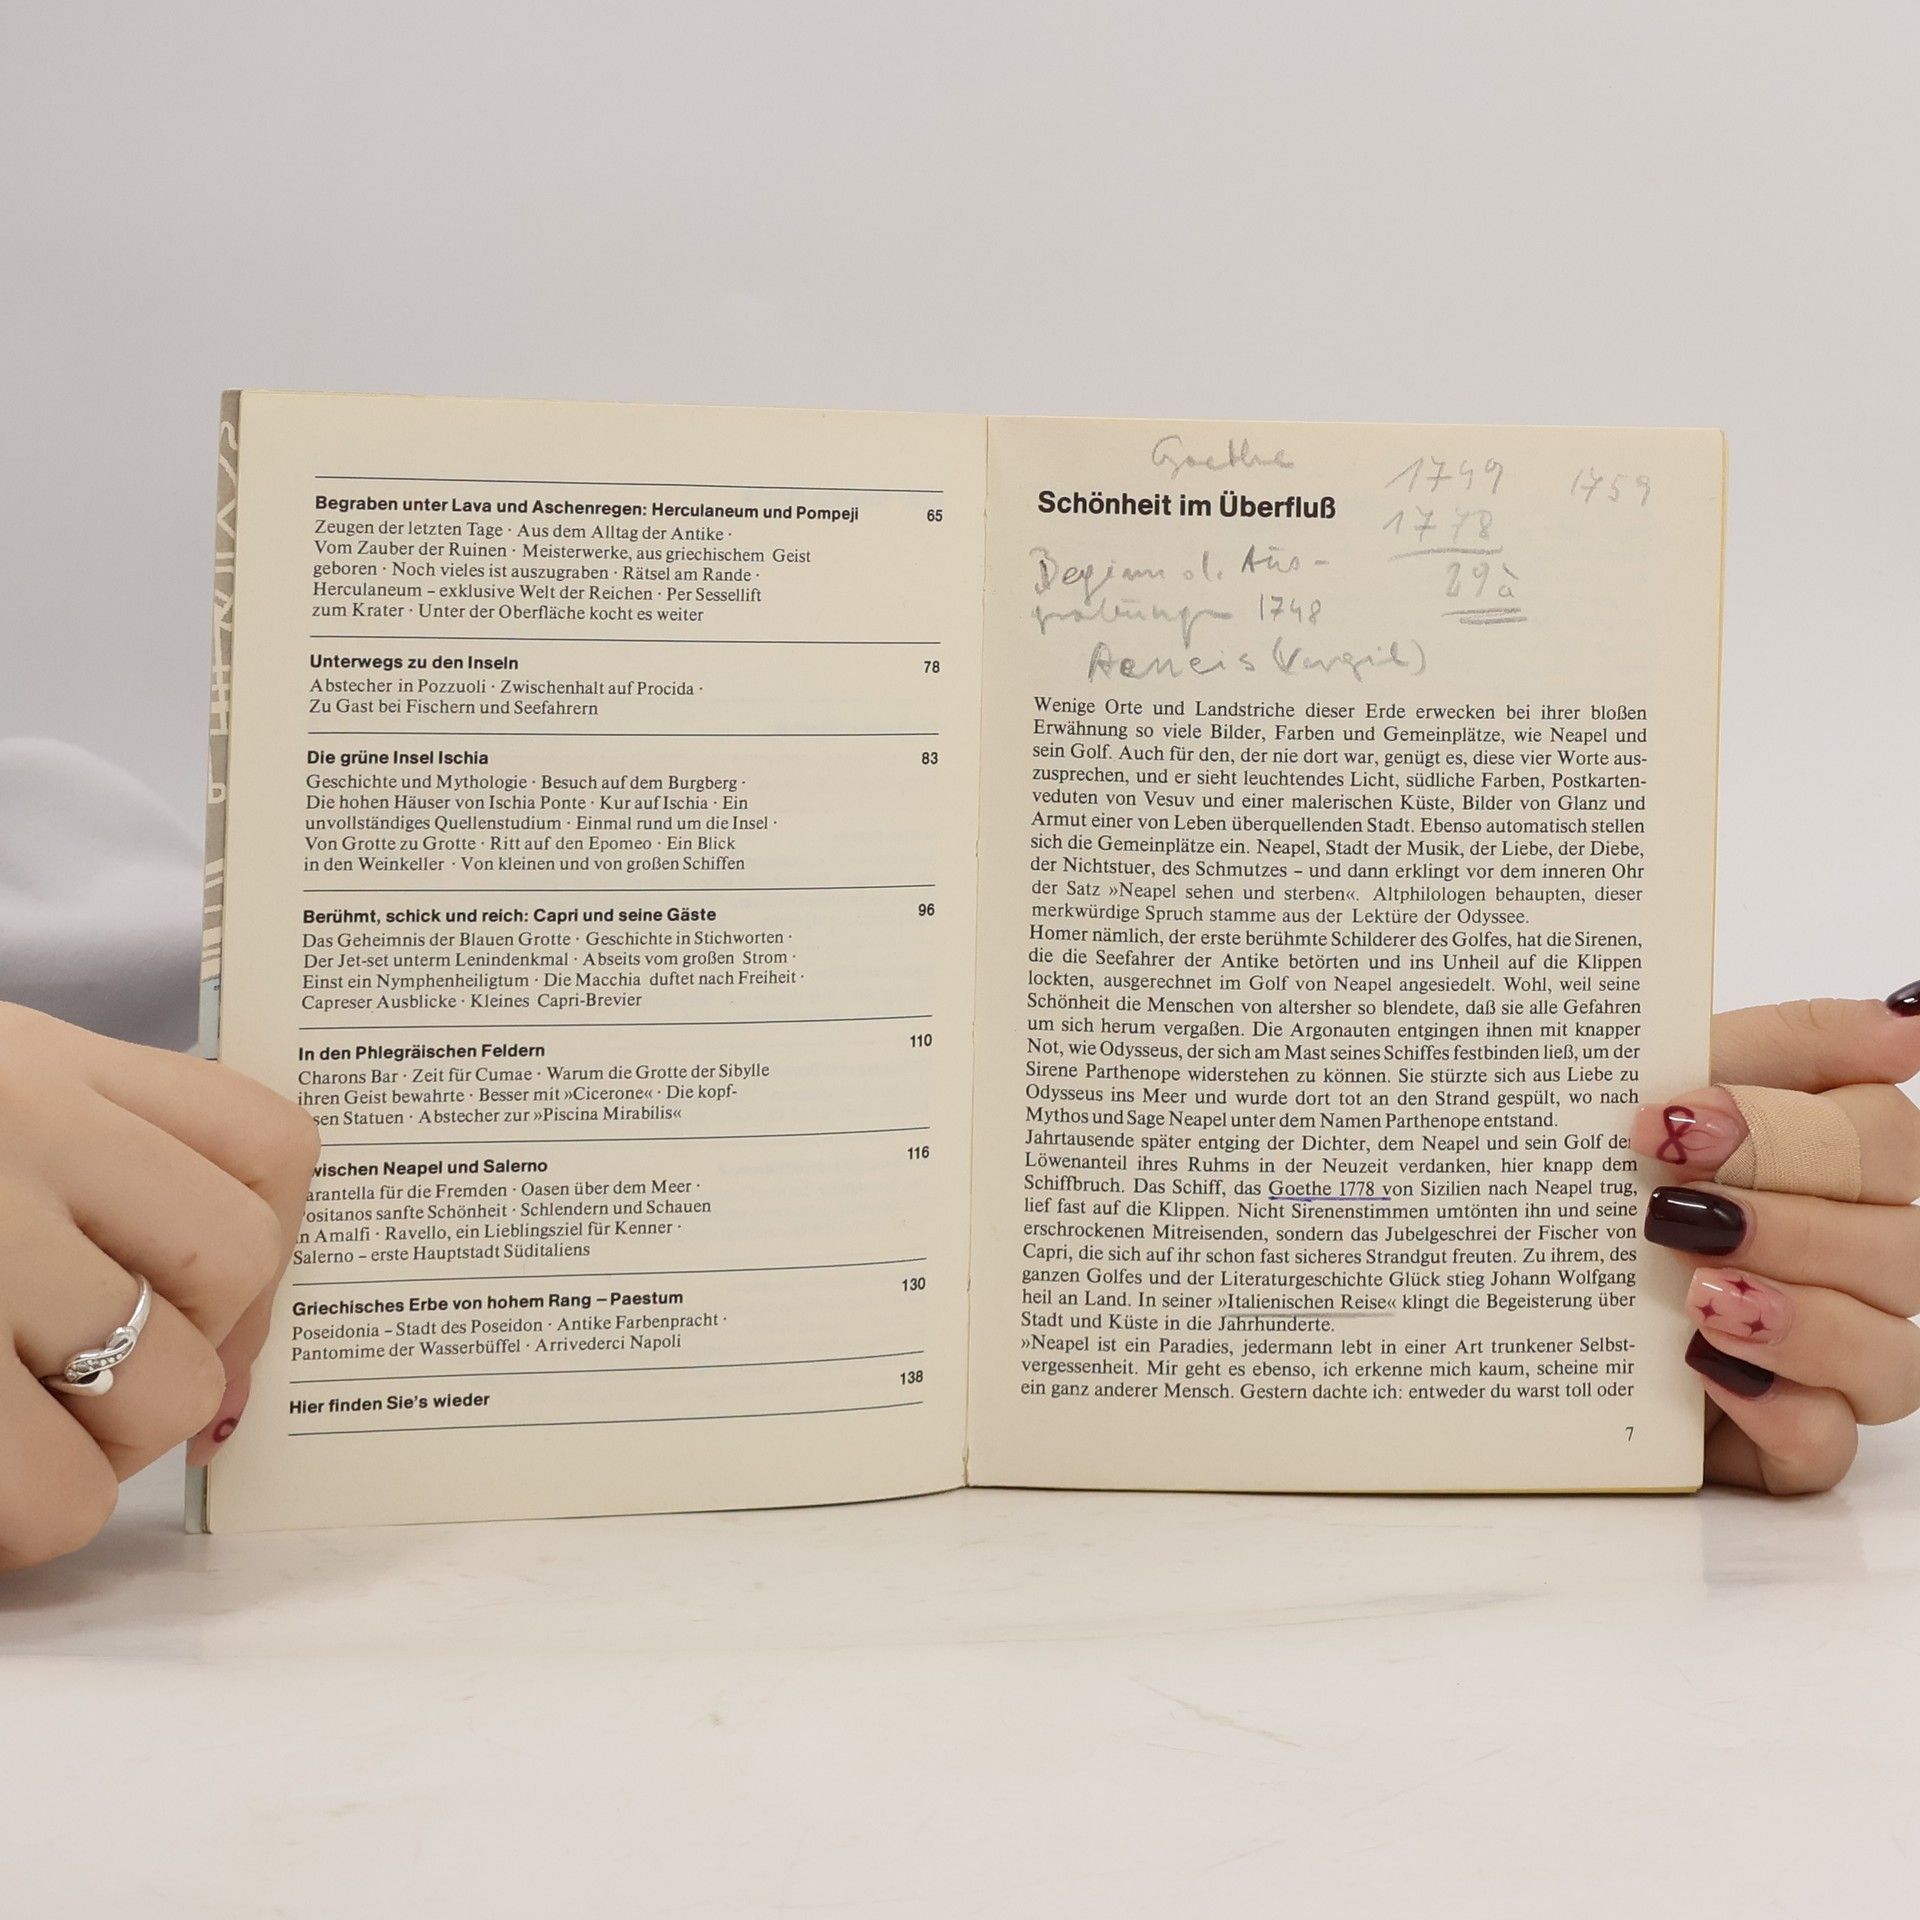 Begraben unter Lava und Aschenregen: Herculaneum und Pompeji 65
Zeugen der letzten Tage · Aus dem Alltag der Antike ·
Vom Zauber der Ruinen · Meisterwerke, aus griechischem Geist
geboren · Noch vieles ist auszugraben · Rätsel am Rande ·
Herculaneum – exklusive Welt der Reichen · Per Sessellift
zum Krater · Unter der Oberfläche kocht es weiter
Unterwegs zu den Inseln 78
Abstecher in Pozzuoli · Zwischenhalt auf Procida ·
Zu Gast bei Fischern und Seefahrern
Die grüne Insel Ischia 83
Geschichte und Mythologie · Besuch auf dem Burgberg ·
Die hohen Häuser von Ischia Ponte · Kur auf Ischia · Ein
unvollständiges Quellenstudium · Einmal rund um die Insel ·
Von Grotte zu Grotte · Ritt auf den Epomeo · Ein Blick
in den Weinkeller · Von kleinen und von großen Schiffen
Berühmt, schick und reich: Capri und seine Gäste 96
Das Geheimnis der Blauen Grotte · Geschichte in Stichworten ·
Der Jet-set unterm Lenindenkmal · Abseits vom großen Strom ·
Einst ein Nymphenheiligtum · Die Macchia duftet nach Freiheit ·
Capreser Ausblicke · Kleines Capri-Brevier
In den Phlegräischen Feldern 110
Charons Bar · Zeit für Cumae · Warum die Grotte der Sibylle
ihren Geist bewahrte · Besser mit »Cicerone« · Die kopf-
sen Statuen · Abstecher zur »Piscina Mirabilis«
wischen Neapel und Salerno 116
arantella für die Fremden · Oasen über dem Meer ·
ositanos sanfte Schönheit · Schlendern und Schauen
in Amalfi · Ravello, ein Lieblingsziel für Kenner ·
Salerno – erste Hauptstadt Süditaliens
Griechisches Erbe von hohem Rang – Paestum 130
Poseidonia – Stadt des Poseidon · Antike Farbenpracht ·
Pantomime der Wasserbüffel · Arrivederci Napoli
Hier finden Sie's wieder 138
Goethe 1749 1759
Schönheit im Überfluß
1778
Beginn d. Aus-
29
grabungen 1748
Aeneis (Vergil)
Wenige Orte und Landstriche dieser Erde erwecken bei ihrer bloßen
Erwähnung so viele Bilder, Farben und Gemeinplätze, wie Neapel und
sein Golf. Auch für den, der nie dort war, genügt es, diese vier Worte aus-
zusprechen, und er sieht leuchtendes Licht, südliche Farben, Postkarten-
veduten von Vesuv und einer malerischen Küste, Bilder von Glanz und
Armut einer von Leben überquellenden Stadt. Ebenso automatisch stellen
sich die Gemeinplätze ein. Neapel, Stadt der Musik, der Liebe, der Diebe,
der Nichtstuer, des Schmutzes – und dann erklingt vor dem inneren Ohr
der Satz »Neapel sehen und sterben«. Altphilologen behaupten, dieser
merkwürdige Spruch stamme aus der Lektüre der Odyssee.
Homer nämlich, der erste berühmte Schilderer des Golfes, hat die Sirenen,
die die Seefahrer der Antike betörten und ins Unheil auf die Klippen
lockten, ausgerechnet im Golf von Neapel angesiedelt. Wohl, weil seine
Schönheit die Menschen von altersher so blendete, daß sie alle Gefahren
um sich herum vergaßen. Die Argonauten entgingen ihnen mit knapper
Not, wie Odysseus, der sich am Mast seines Schiffes festbinden ließ, um der
Sirene Parthenope widerstehen zu können. Sie stürzte sich aus Liebe zu
Odysseus ins Meer und wurde dort tot an den Strand gespült, wo nach
Mythos und Sage Neapel unter dem Namen Parthenope entstand.
Jahrtausende später entging der Dichter, dem Neapel und sein Golf den
Löwenanteil ihres Ruhms in der Neuzeit verdanken, hier knapp dem
Schiffbruch. Das Schiff, das Goethe 1778 von Sizilien nach Neapel trug,
lief fast auf die Klippen. Nicht Sirenenstimmen umtönten ihn und seine
erschrockenen Mitreisenden, sondern das Jubelgeschrei der Fischer von
Capri, die sich auf ihr schon fast sicheres Strandgut freuten. Zu ihrem, des
ganzen Golfes und der Literaturgeschichte Glück stieg Johann Wolfgang
heil an Land. In seiner »Italienischen Reise« klingt die Begeisterung über
Stadt und Küste in die Jahrhunderte.
»Neapel ist ein Paradies, jedermann lebt in einer Art trunkener Selbst-
vergessenheit. Mir geht es ebenso, ich erkenne mich kaum, scheine mir
ein ganz anderer Mensch. Gestern dachte ich: entweder du warst toll oder
7